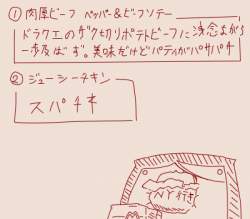 ① 肉厚ビーフ ペッパー&ビーフソテー
ドラクエのザク切りポテトビーフに残念ながら
一歩及ばず。美味だけどパティがパサパサ
② ジューシーチキン
スパチキ
NY行き